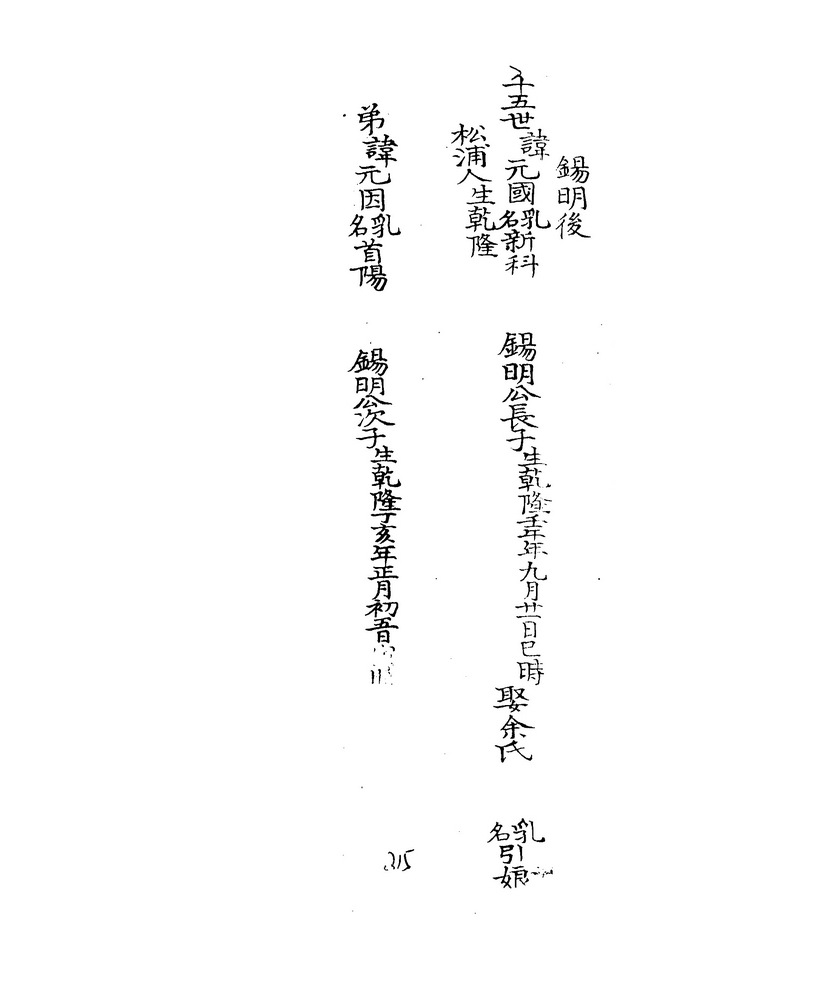 錫明後
十五世諱元國乳名新科
松浦人生乾隆
錫明公長子生乾隆壬午年九月廿一日巳時娶余氏
乳名引娘
弟諱元因乳名首陽
錫明公次子生乾隆丁亥年正月初五日
315